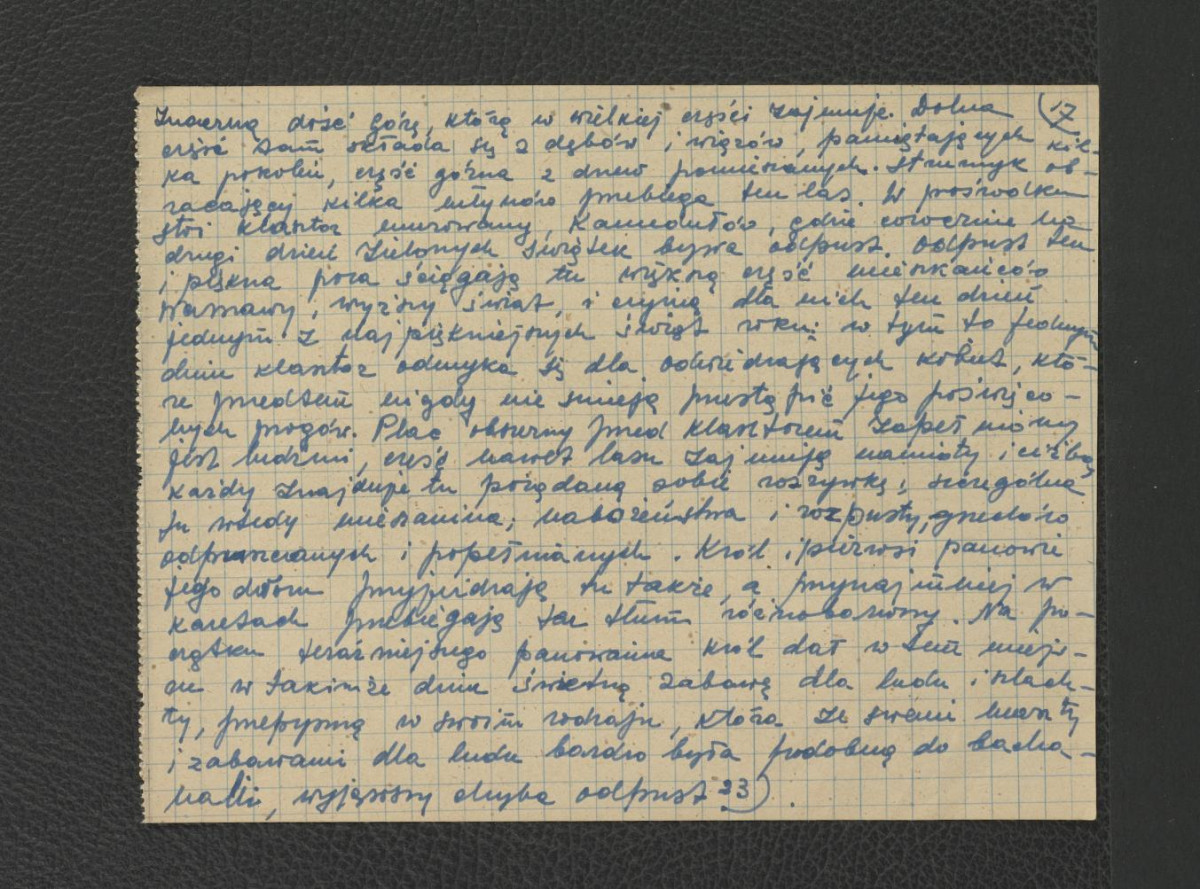 17
znaczną dość górę, którą w wielkiej części zajmuje. Dolna
część sama składa się z dębów i więzów, pamiętających kil-
ka pokoleń, część górna z drzew pomieszanych. Strumyk ob-
racający kilka młynów przebiega ten las. W pośrodku
stoi klasztor murowany, Kamedułów, gdzie corocznie na
drugi dzień Zielonych Świątek bywa odpust. Odpust ten
i piękna pora ściągają tu większą część mieszkańców
Warszawy, wyższy świat, i czynią dla nich ten dzień
jednym z najpiękniejszych świąt roku: w tym to jednym
dniu klasztor odmyka się dla odwiedzających kobiet, któ-
re przedtem nigdy nie śmieją przestąpić jego poświęco-
nych progów. Plac obszerny przed klasztorem zapełniony
jest ludźmi, część nawet lasu zajmują namioty i ciżba,
każdy znajduje tu pożądaną sobie rozrywkę; szczególna
tu wtedy mieszanina, nabożeństwa i rozpusty, grzechów
odpuszczanych i popełnianych. Król i pierwsi panowie
jego dworu przyjeżdżają tu także, a przynajmniej w
karetach przebiegają ten tłum różnobarwny. Na po-
czątku teraźniejszego panowania król dał w tem miejs-
cu w takimże dniu świetną zabawę dla ludu i szlach-
ty, przepyszną w swoim rodzaju, która ze swemi
i zabawami dla ludu bardzo była podobną do bacha-
nalii, wyjąwszy chyba odpust 23).